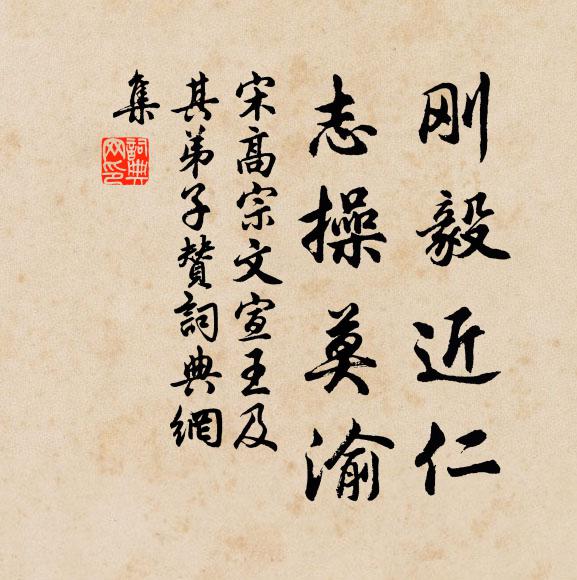 刚毅近仁
志操莫渝
宋高宗文宣王及
其弟子赞詞典網
集
詞典
网印